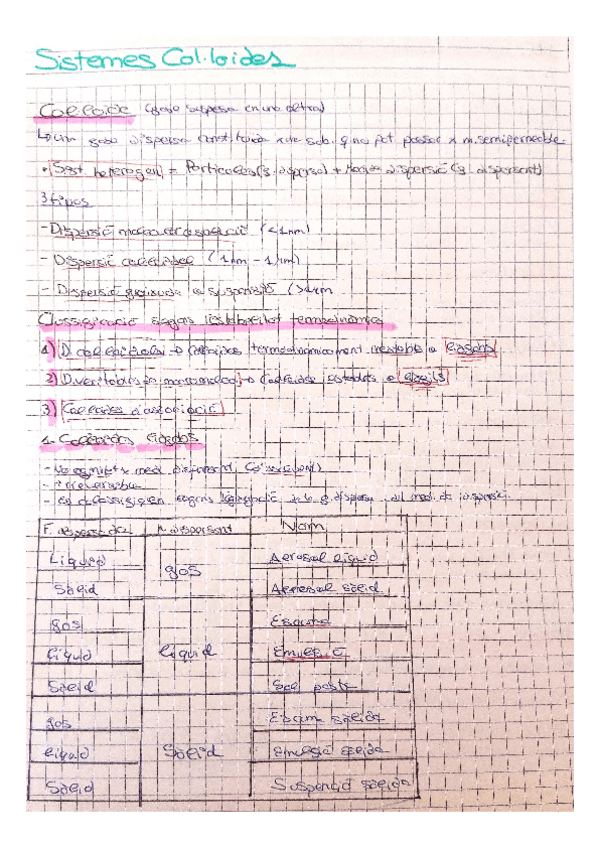 Sistemes Col·loides
Col·loide (fase suspesa en una altra)
↳ un fase dispersa constituïda x de sub. q no pot passar x m. semipermeable
• Sist. heterogeni = Partícules (f. dispersa) + Medi dispersió (f. dispersant)
3 tipus
- Dispersió (<1nm)
- Dispersió col·loidal (1nm - 1μm)
- Dispersió grollera o suspensió (>1μm
Classificació segons l'estabilitat termodinàmica
1) D. col·loidals → Col·loides termodinàmicament inestables o liòfobs
2) D. veritables → Col·loides estables o liòfils
3) Col·loides d'associació
1- Col·loides liòfobs
- medi dispersant
- irreversibles
- Es classifiquen segons de la f. dispersa i del medi de dispersió
F. dispersada M. dispersant Nom
Líquid gas Aerosol líquid
Sòlid Aerosol sòlid
gas líquid Escuma
líquid Emulsió
Sòlid Sol, pasta
gas Sòlid Escum sòlida
líquid Emulsió sòlida
Sòlid Suspensió sòlida